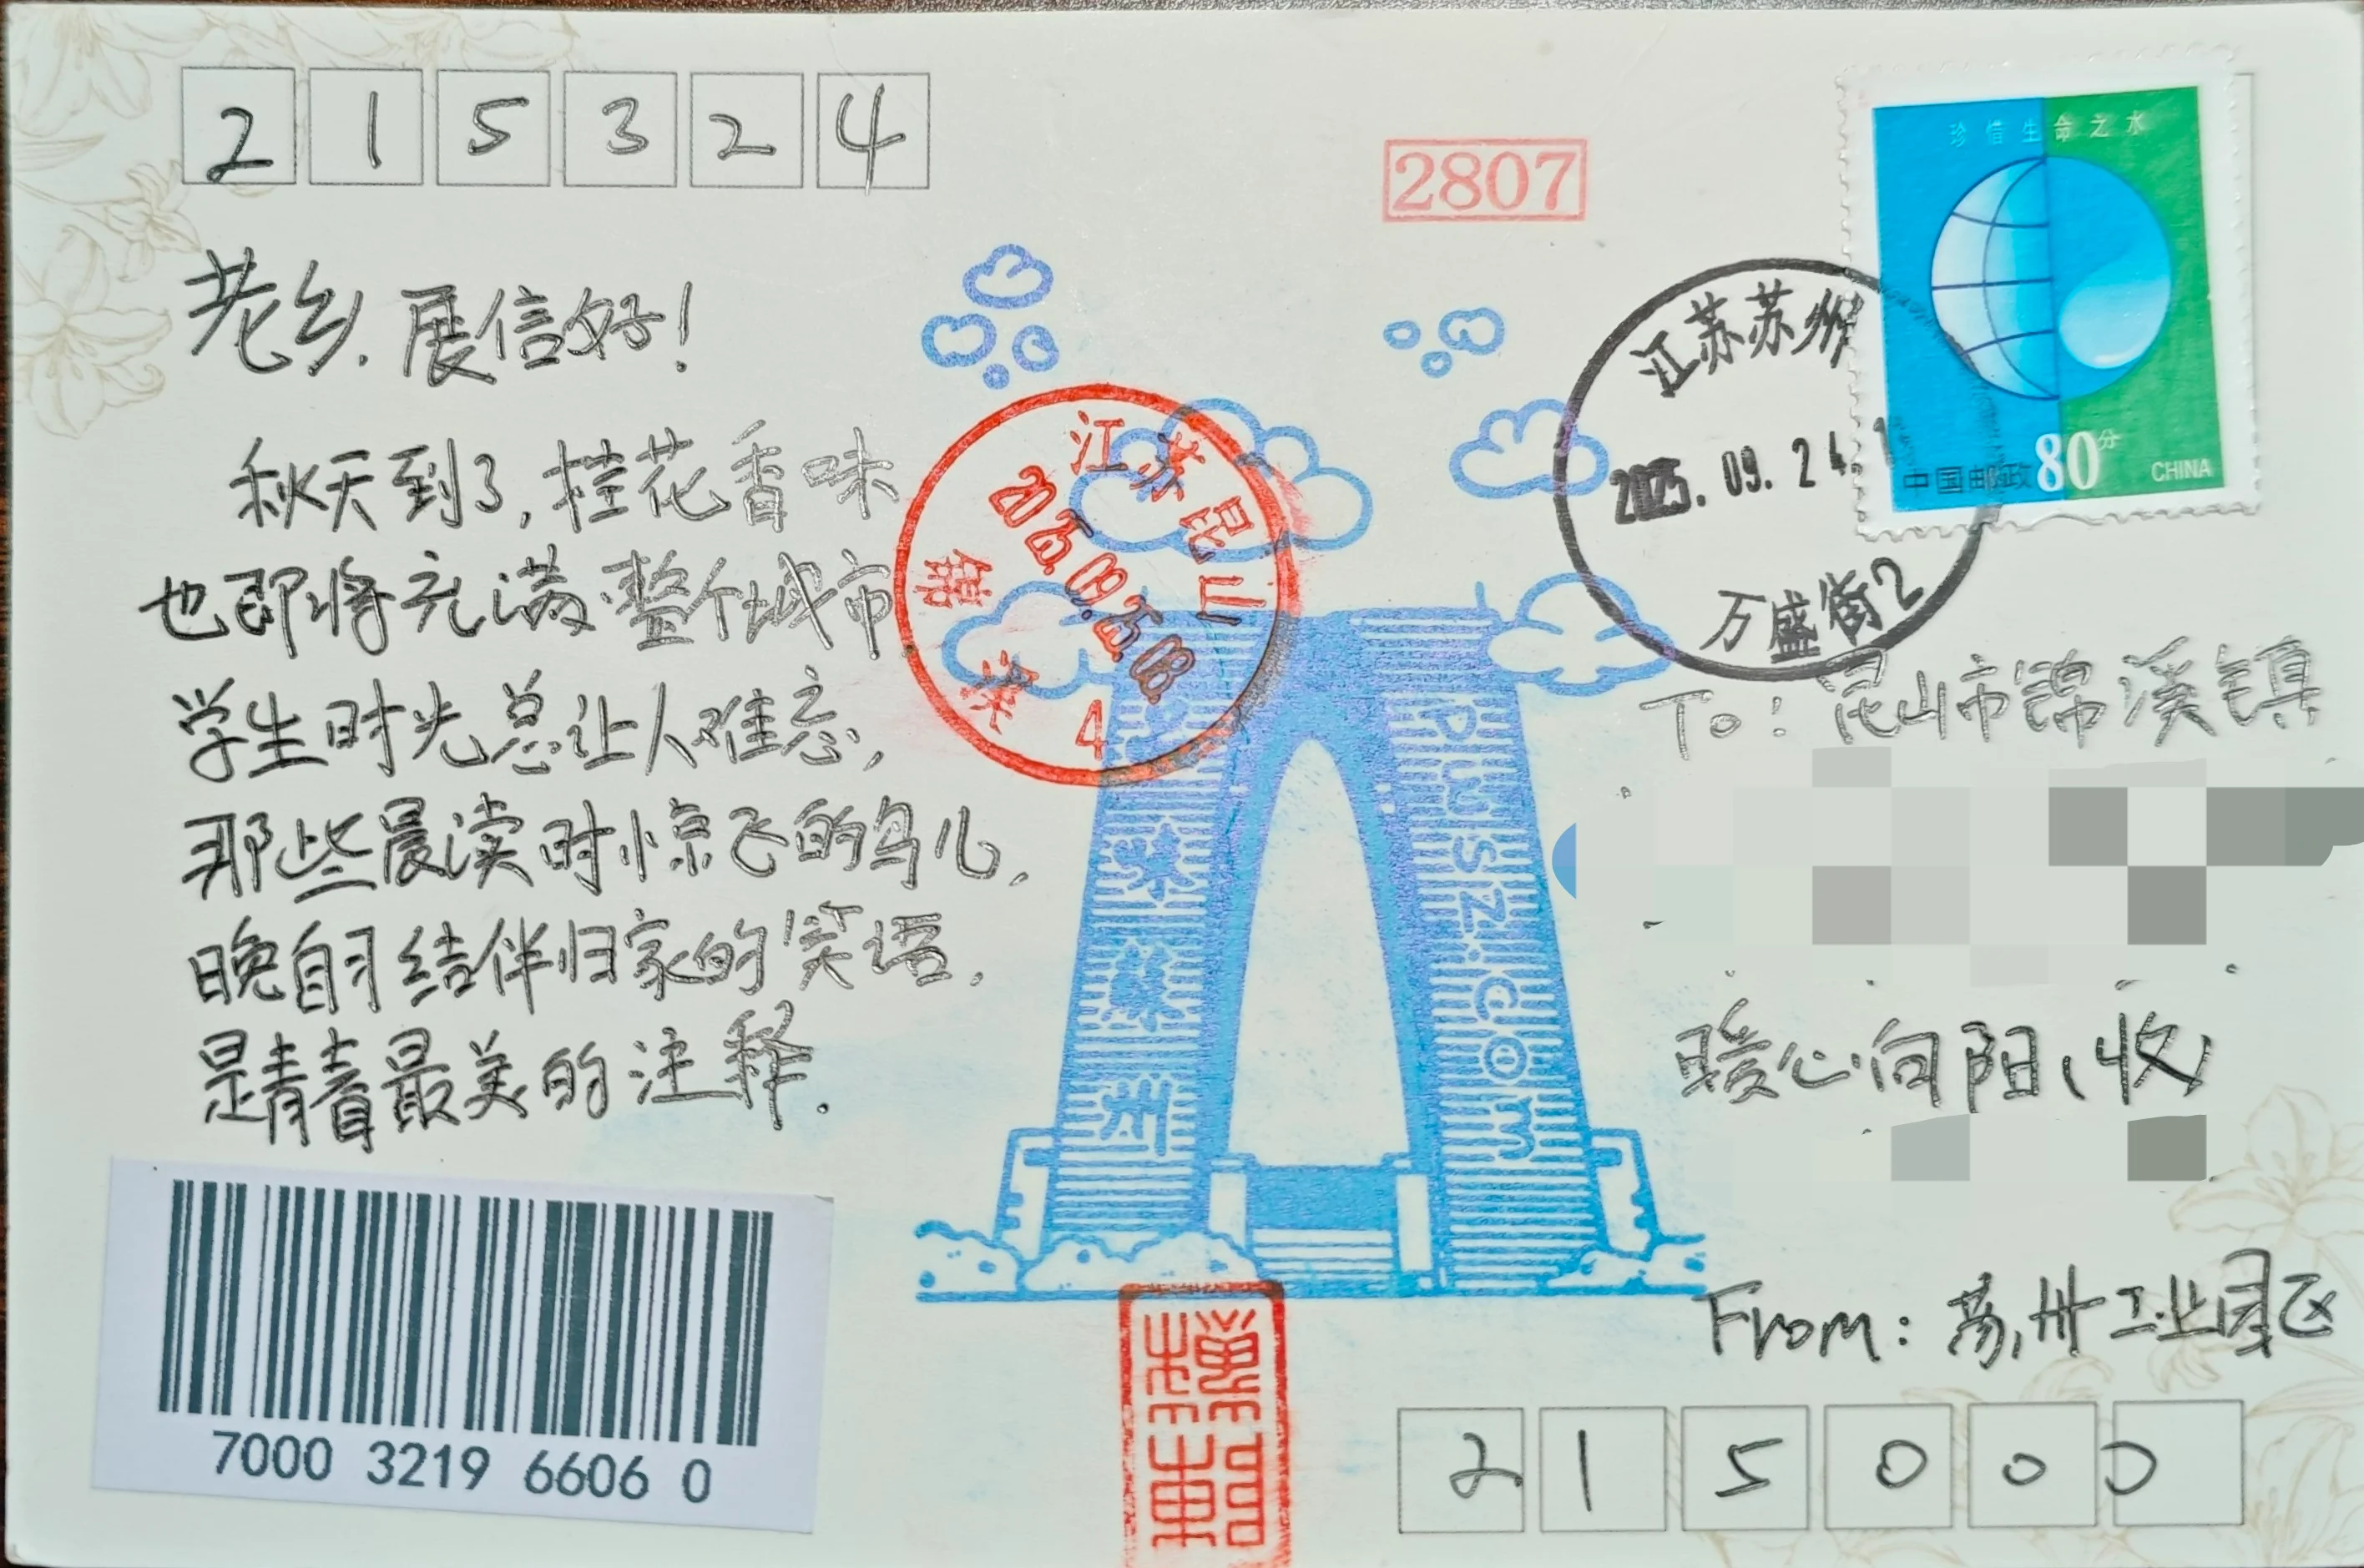 215324
2807
珍惜生命之水
中国邮政 80分 CHINA
江苏苏州
2025.09.24.1
万盛街2
老乡,展信好!
秋天到了,桂花香味
也即将充满整个城市
学生时光总让人难忘,
那些晨读时惊飞的鸟儿,
晚自习结伴归家的笑语,
是青春最美的注释.
江苏昆山
2025.09.25.08
锦溪 4
To: 昆山市锦溪镇
暖心向阳(收)
From: 苏州工业园区
215000
7000 3219 6606 0